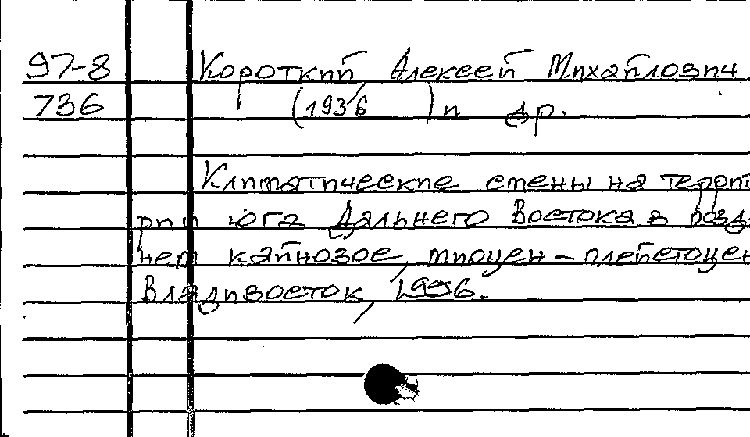 97-8 Короткий, Алексей Михайлович
736 (1936 ) и др.
Климатические смены на террит
рии юга Дальнего Востока в позд
нем кайнозое, миоцен - плейстоцен
Владивосток, 1996.